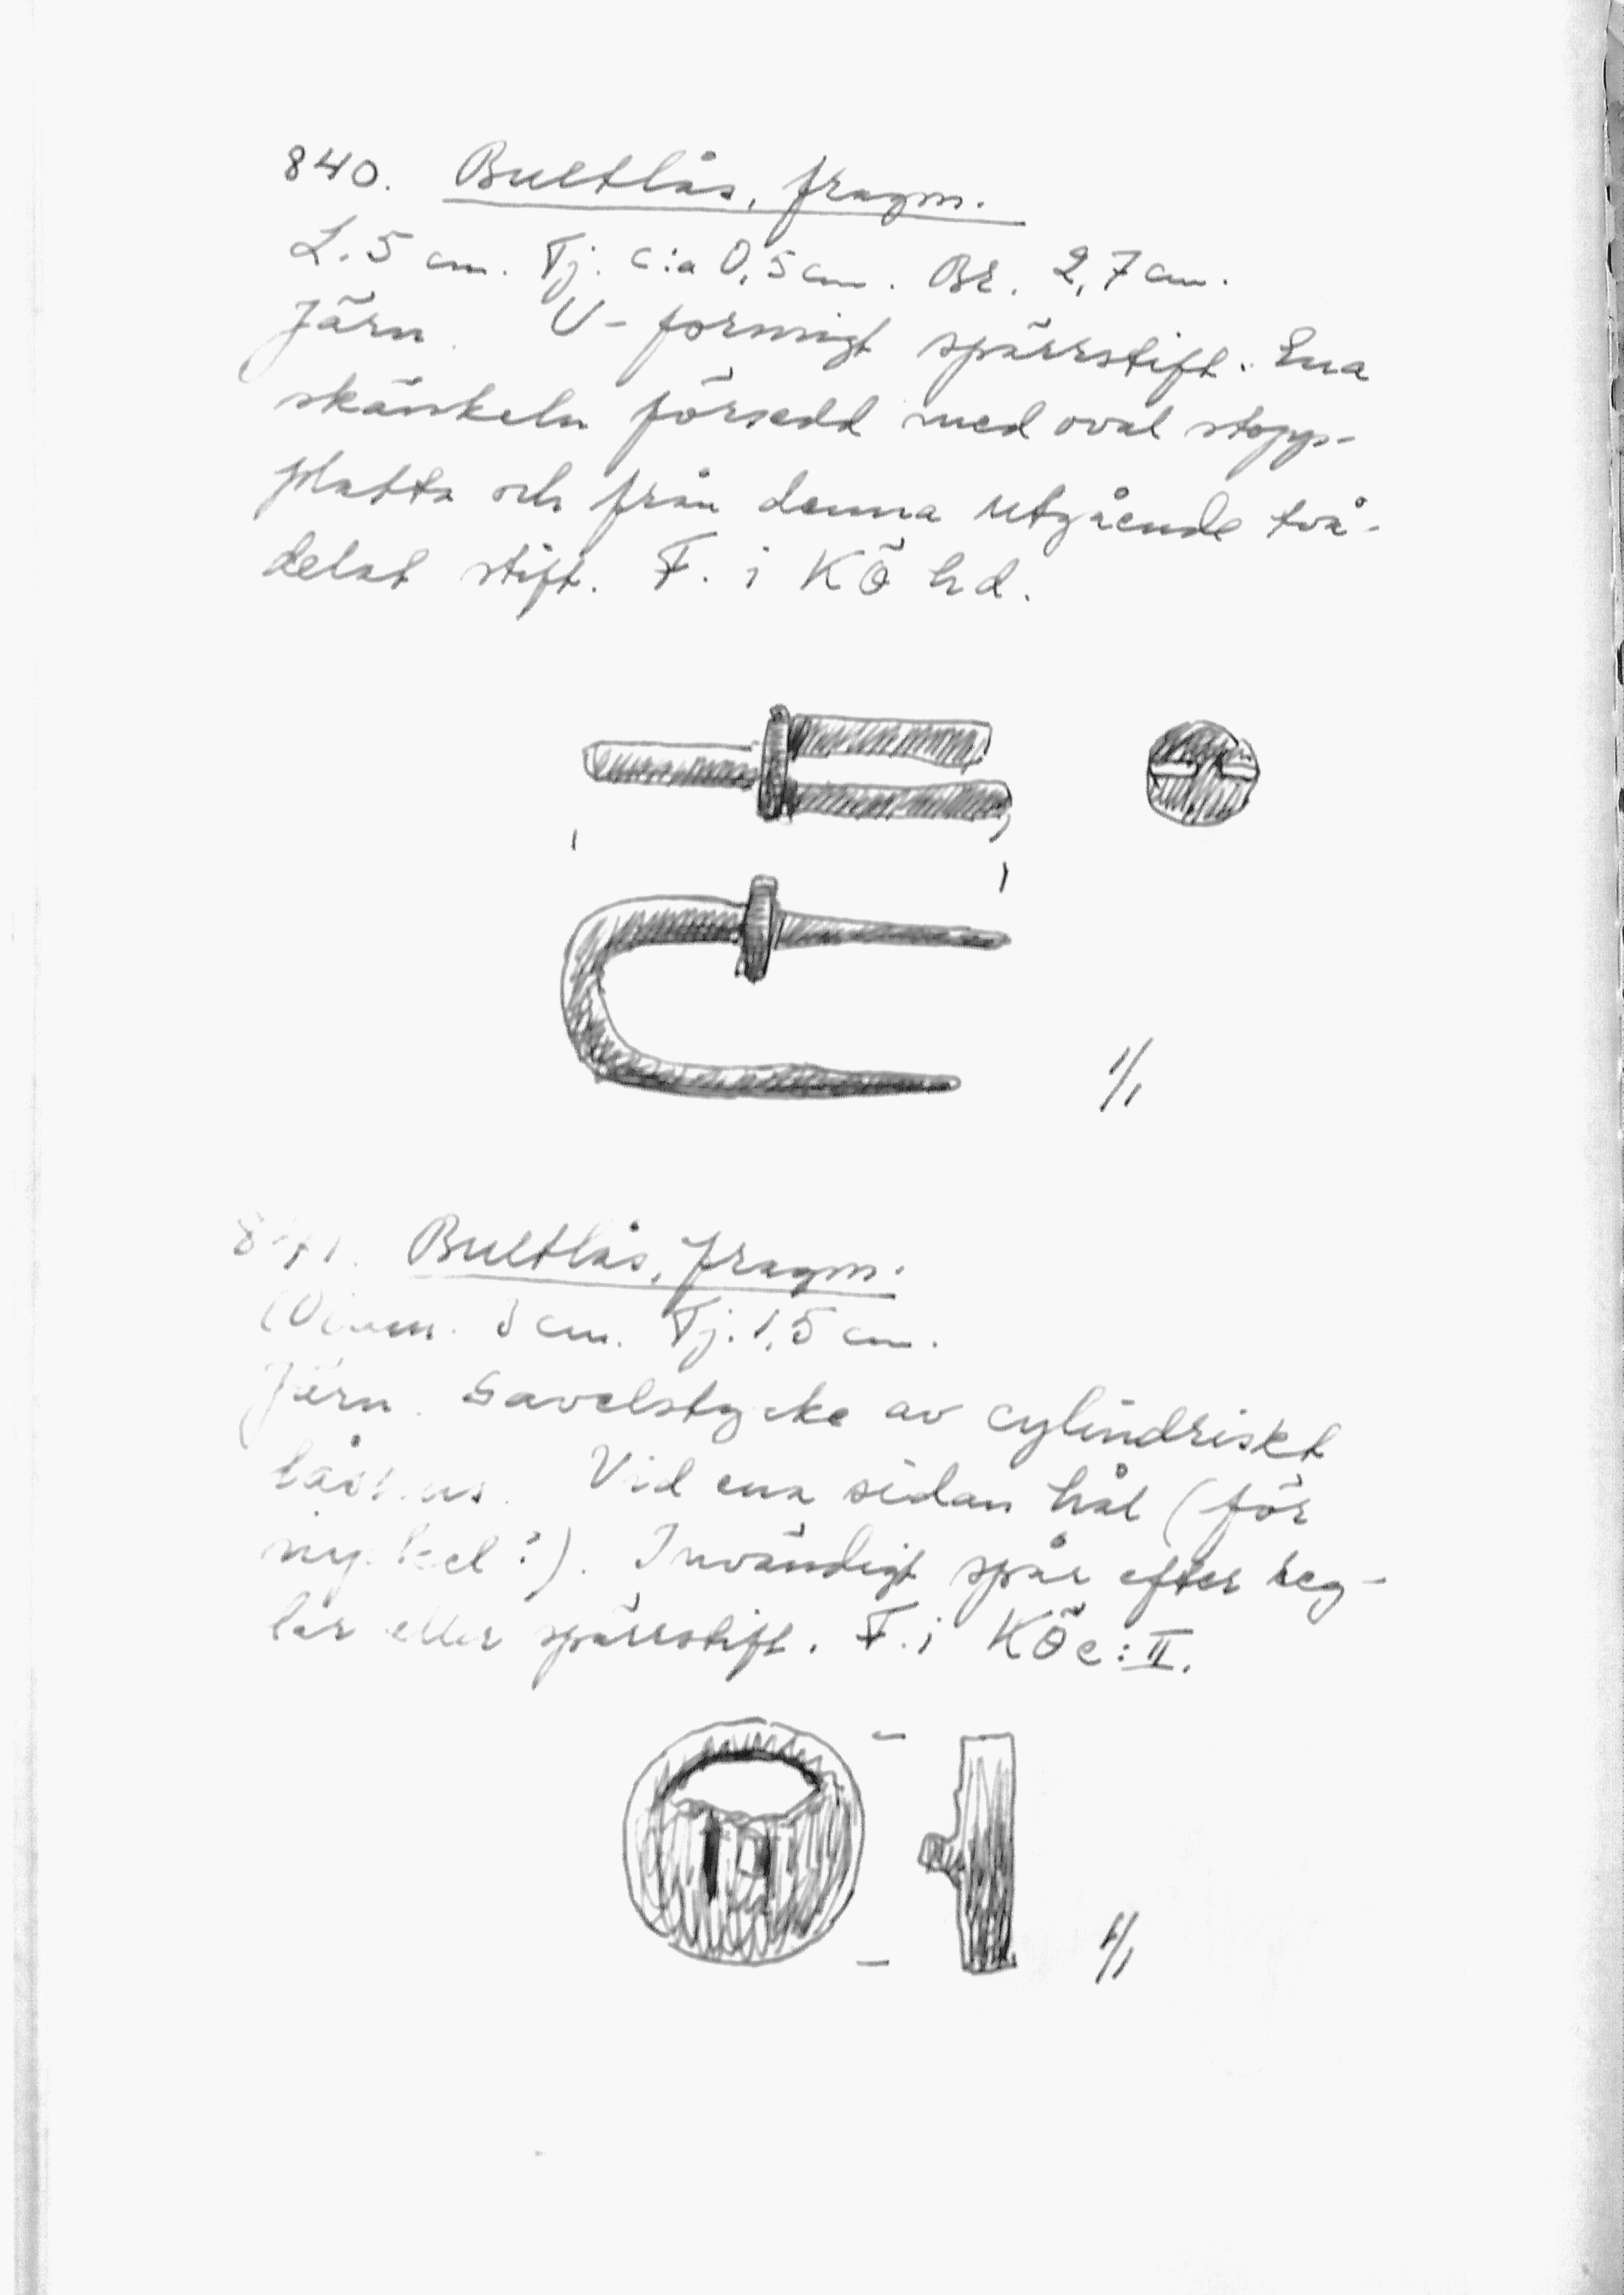 840. Bultlås, fragm.
L. 5 cm. Tj. c:a 0,5 cm. Br. 2,7 cm.
Järn. U-formigt spärrstift. Ena
skänkeln försedd med oval stopp-
platta och från denna utgående två-
delat stift. F. i KÖ hd.
1/1
841. Bultlås, fragm.
Diam. 3 cm. Tj. 1,5 cm.
Järn. Gavelstycke av cylindriskt
låshus. Vid ena sidan hål (för
nyckel?). Invändigt spår efter reg-
lar eller spärrstift. F. i KÖe:II.
1/1